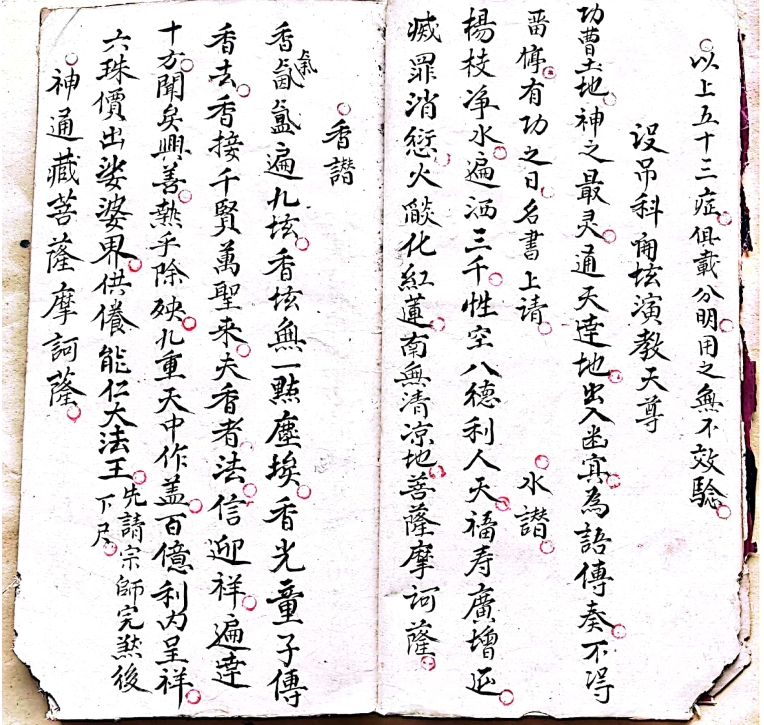 以上五十三症俱載分明用之無不效驗
設吊科開坛演教天尊
功曹土地神之最灵通天達地出入幽冥為語傳奏不淂
畱停有功之日名書上请　水讃
楊枝净水遍洒三千性空八德利人天福寿廣增延
滅罪消愆火燄化紅蓮南無清凉地菩薩摩訶薩
香讃
香氤氲遍九垓香坛無一點塵埃香光童子傳
香去香接千賢萬聖来夫香者法信迎祥遍達
十方聞矣興善熱乎除殃九重天中作盖百億利内呈祥
六珠價出娑婆界供飬能仁大法王先請宗師完㷊後
下尺
神通藏菩薩摩訶薩